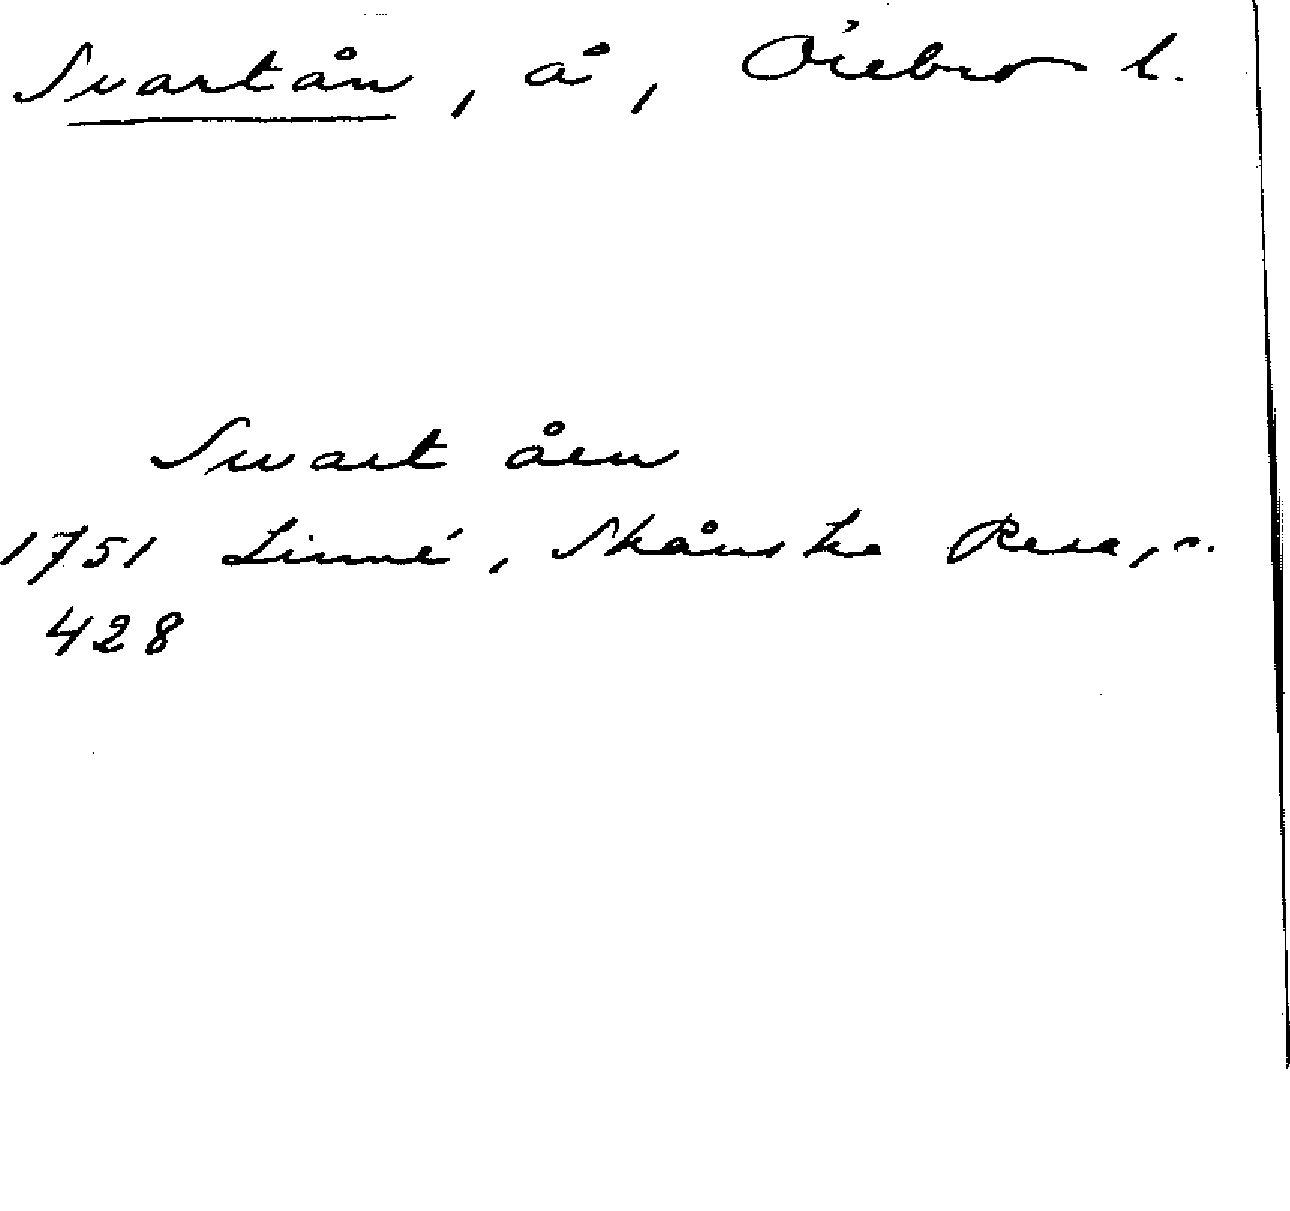 Svartån, å, Örebro l.
Swart åen
1751 Linné, Skånska Resa, s.
428